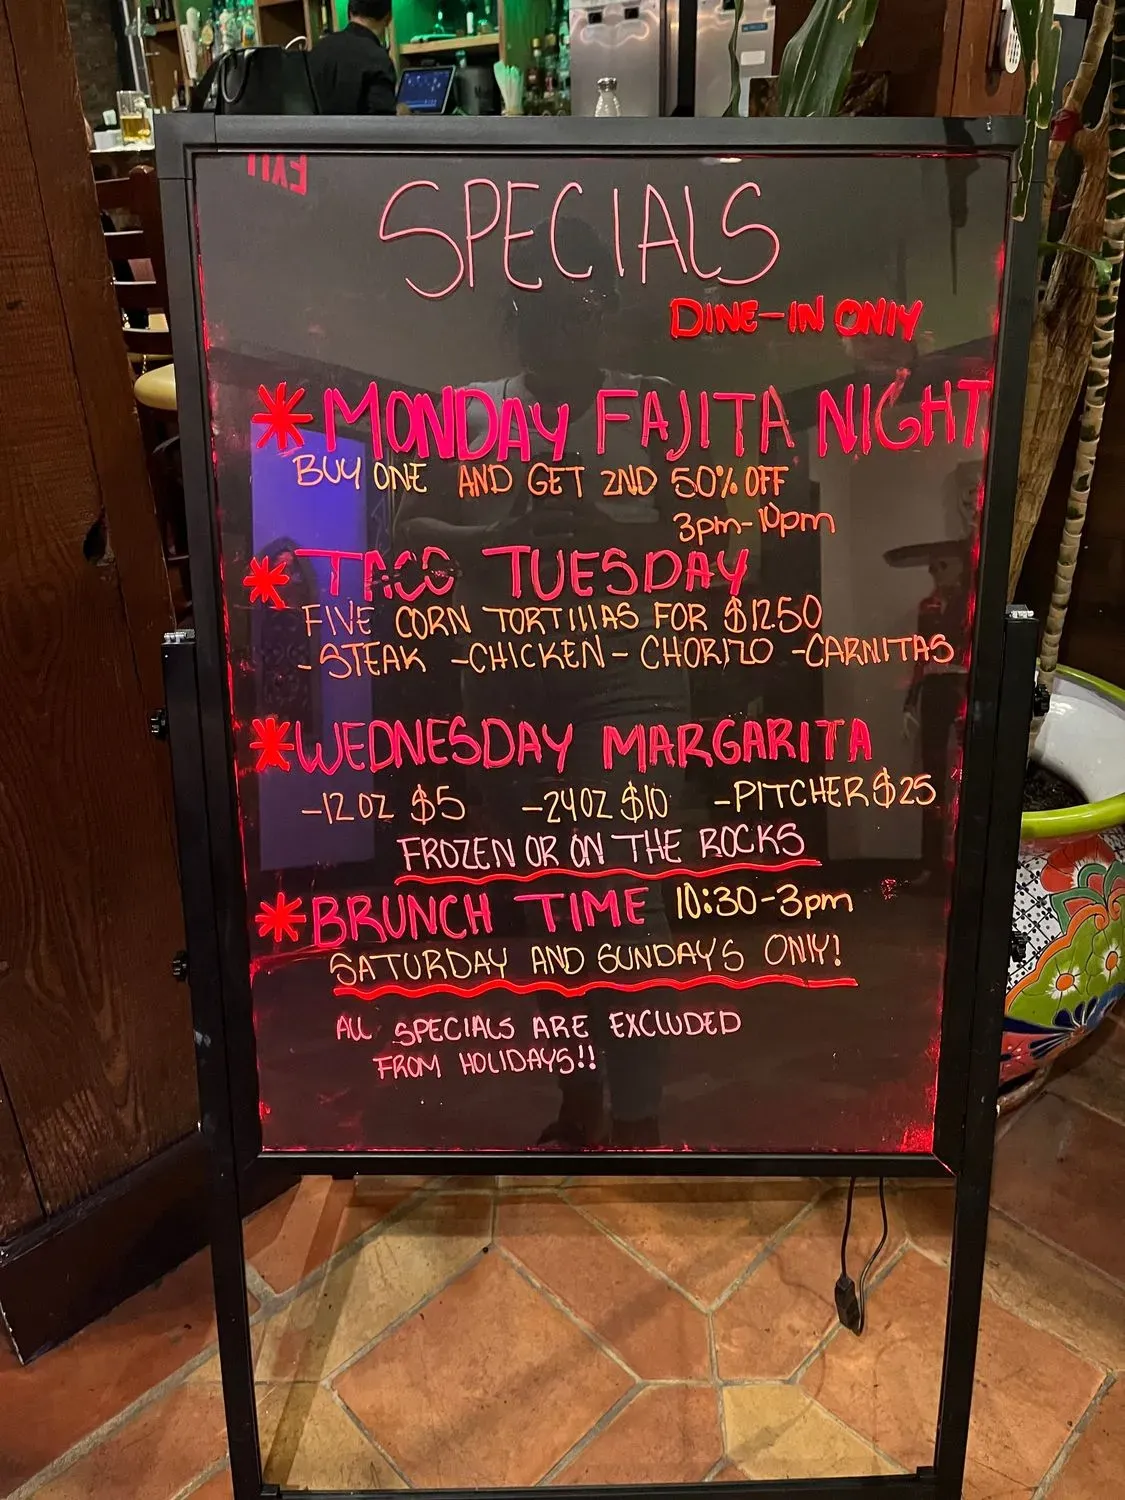 EXIT
SPECIALS
DINE-IN ONLY
MONDAY FAJITA NIGHT
BUY ONE AND GET 2ND 50% OFF
3pm-10pm
TACO TUESDAY
FIVE CORN TORTILLAS FOR $12.50
-STEAK -CHICKEN- CHORIZO -CARNITAS
WEDNESDAY MARGARITA
-12OZ $5 -24OZ $10 -PITCHER $25
FROZEN OR ON THE ROCKS
BRUNCH TIME 10:30-3pm
SATURDAY AND SUNDAYS ONLY!
ALL SPECIALS ARE EXCLUDED
FROM HOLIDAYS!!